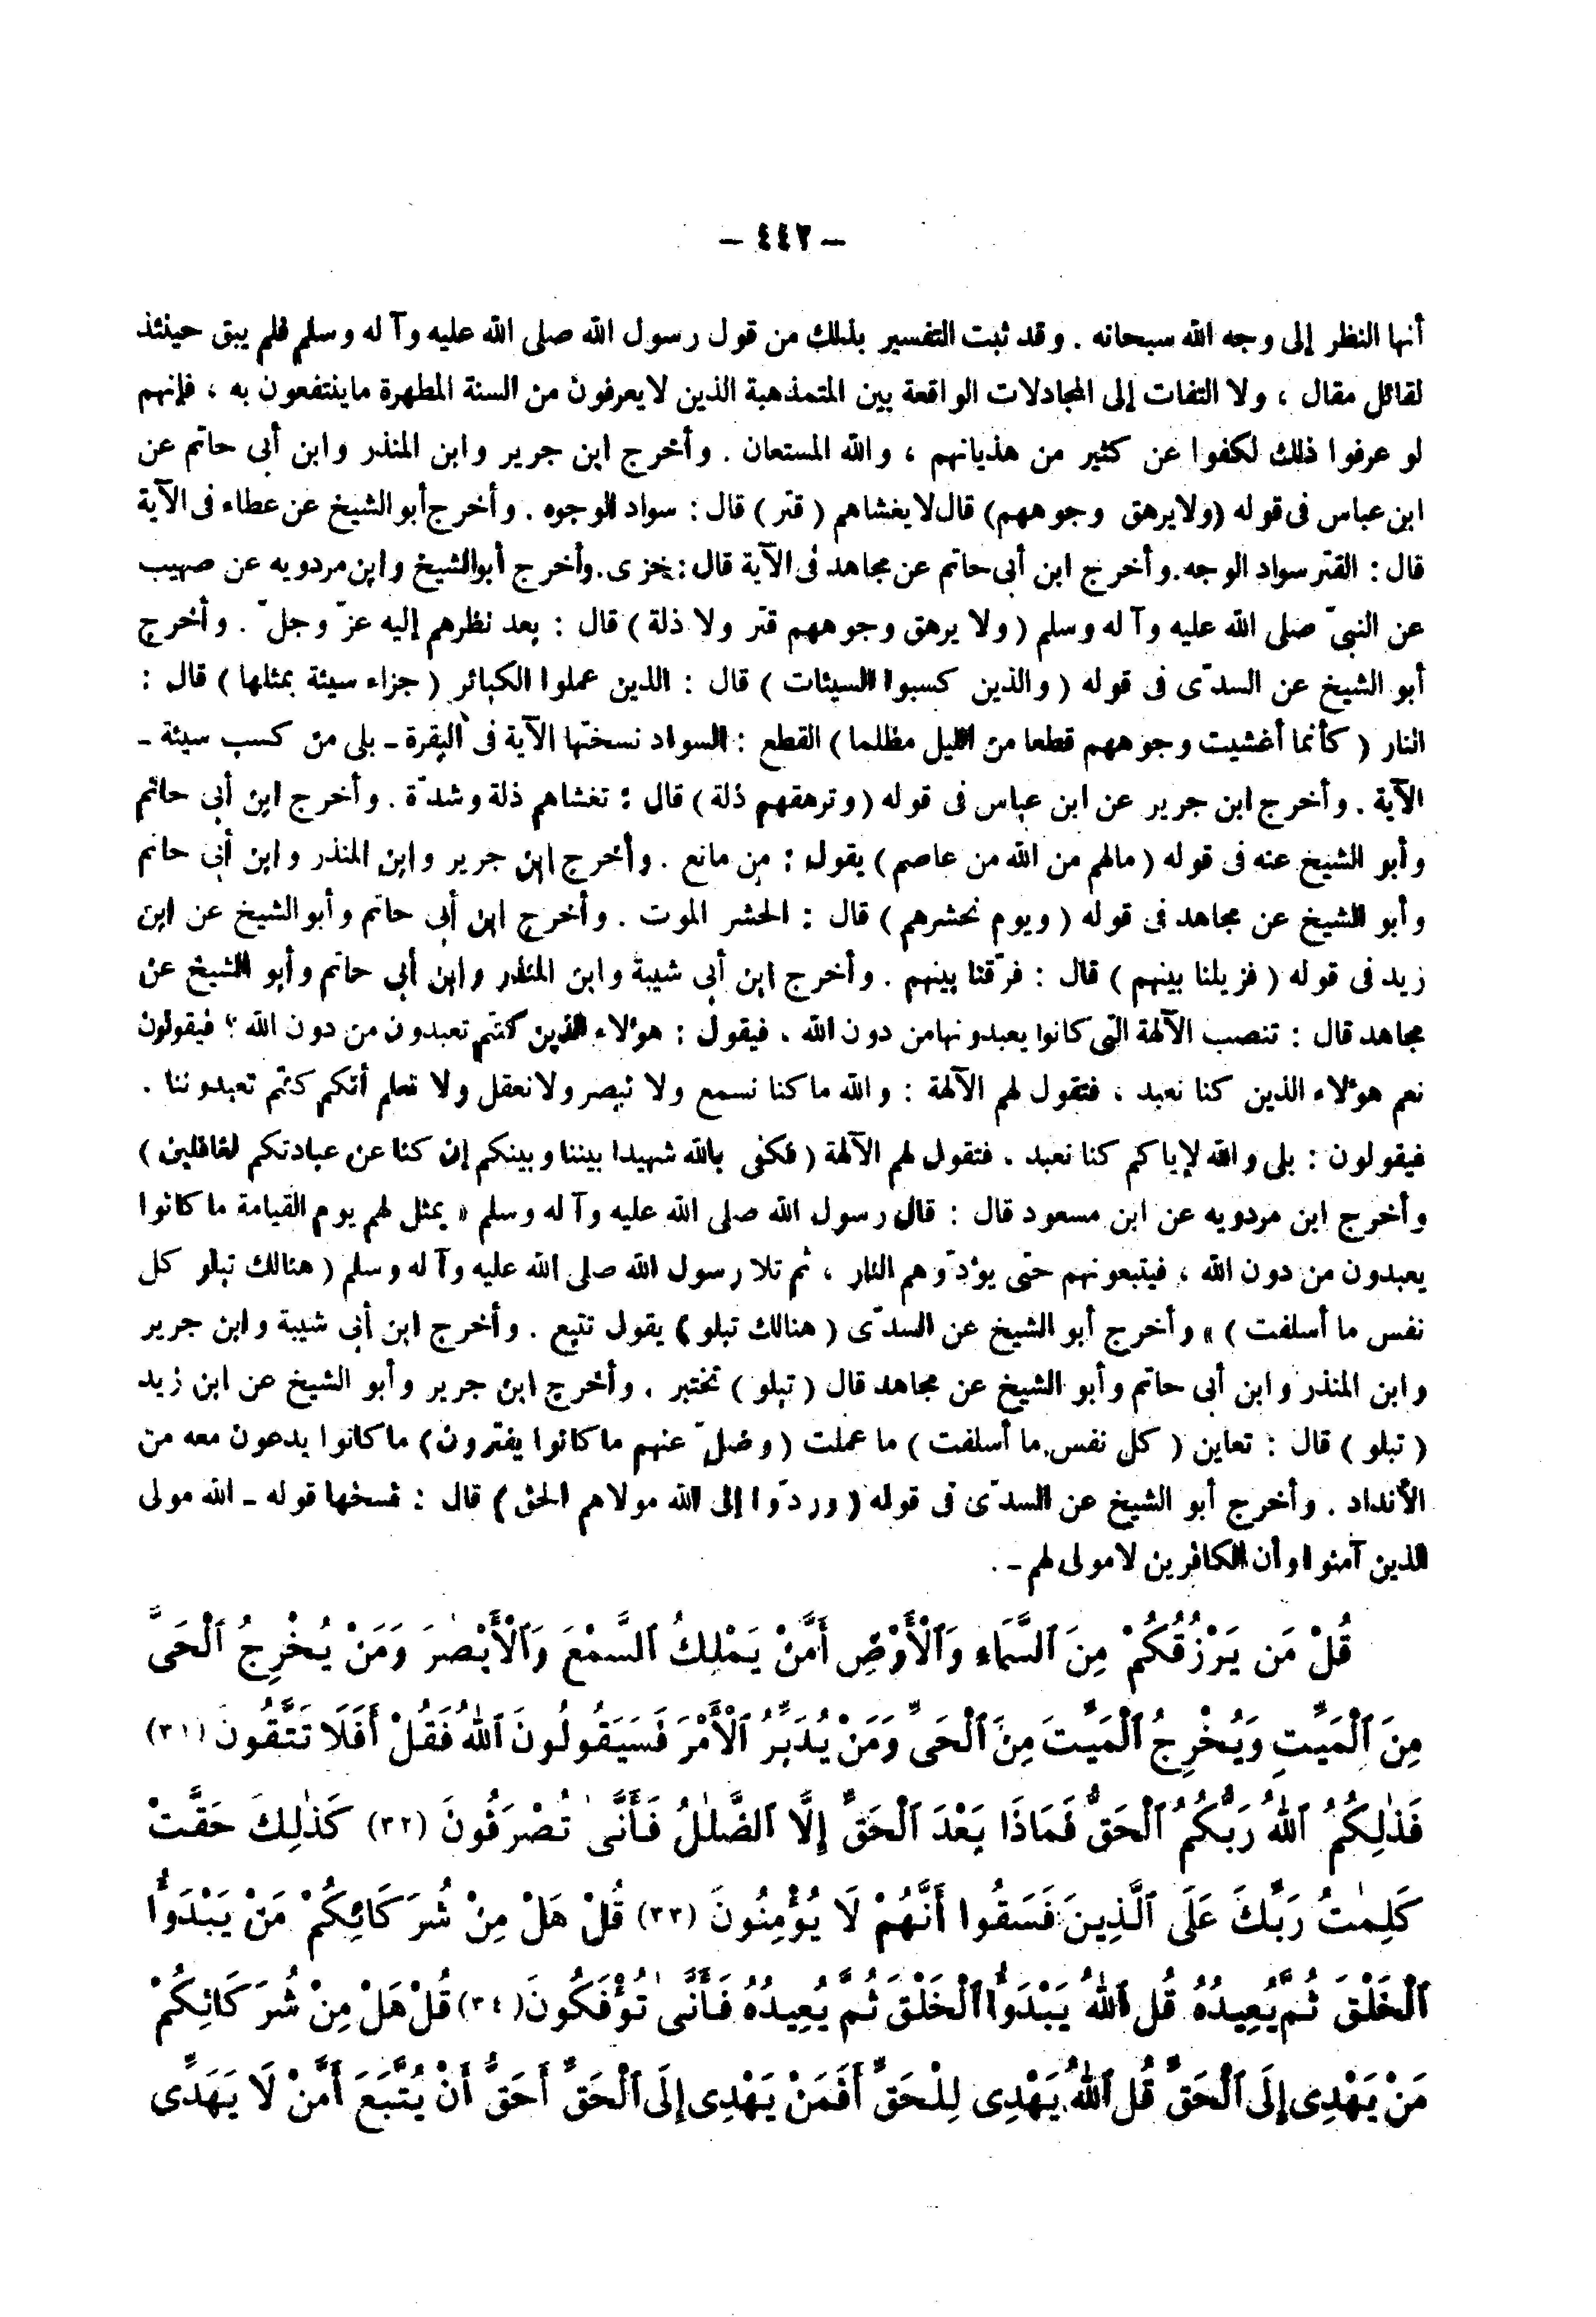 – ٤٤٢ –
أنها النظر إلى وجه الله سبحانه . وقد ثبت التفسير بذلك من قول رسول الله صلى الله عليه وآ له وسلم فلم يبق حينئذ
لقائل مقال ، ولا التفات إلى المجادلات الواقعة بين المتمذهبة الذين لايعرفون من السنة المطهرة ماينتفعون به ، فإنهم
لو عرفوا ذلك لكفوا عن كثير من هذيانهم ، والله المستعان . وأخرج ابن جرير وابن المنذر وابن أبى حاتم عن
ابن عباس فى قوله (ولا يرهق وجوههم) قال لا يغشاهم ( قتر ) قال : سواد الوجوه . وأخرج أبو الشيخ عن عطاء فى الآية
قال : القتر سواد الوجه . وأخرج ابن أبى حاتم عن مجاهد فى الآية قال : خزى . وأخرج أبو الشيخ وابن مردويه عن صهيب
عن النبىّ صلى الله عليه وآ له وسلم ( ولا يرهق وجوههم قتر ولا ذلة ) قال : بعد نظرهم إليه عزّ وجلّ . وأخرج
أبو الشيخ عن السدّى فى قوله ( والذين كسبوا السيئات ) قال : الذين عملوا الكبائر ( جزاء سيئة بمثلها ) قال :
النار ( كأنما أغشيت وجوههم قطعا من الليل مظلما ) القطع : السواد نسختها الآية فى البقرة ـ بلى من كسب سيئة ـ
الآية . وأخرج ابن جرير عن ابن عباس فى قوله ( وترهقهم ذلة ) قال : تغشاهم ذلة وشدّة . وأخرج ابن أبى حاتم
وأبو الشيخ عنه فى قوله ( مالهم من الله من عاصم ) يقول : من مانع . وأخرج ابن جرير وابن المنذر وابن أبى حاتم
وأبو الشيخ عن مجاهد فى قوله ( ويوم نحشرهم ) قال : الحشر الموت . وأخرج ابن أبى حاتم وأبو الشيخ عن ابن
زيد فى قوله ( فزيلنا بينهم ) قال : فرّقنا بينهم . وأخرج ابن أبى شيبة وابن المنذر وابن أبى حاتم وأبو الشيخ عن
مجاهد قال : تنصب الآلهة التى كانوا يعبدونها من دون الله ، فيقول : هؤلاء الذين كنتم تعبدون من دون الله ؟ فيقولون
نعم هؤلاء الذين كنا نعبد ، فتقول لهم الآلهة : والله ماكنا نسمع ولا نبصر ولا نعقل ولا نعلم أنكم كنتم تعبدوننا .
فيقولون : بلى والله لإياكم كنا نعبد ، فتقول لهم الآلهة ( فكفى بالله شهيدا بيننا وبينكم إن كنا عن عبادتكم لغافلين )
وأخرج ابن مردويه عن ابن مسعود قال : قال رسول الله صلى الله عليه وآ له وسلم « يمثل لهم يوم القيامة ما كانوا
يعبدون من دون الله ، فيتبعونهم حتى يؤدّوهم النار ، ثم تلا رسول الله صلى الله عليه وآ له وسلم ( هنالك تبلو كل
نفس ما أسلفت ) » وأخرج أبو الشيخ عن السدّى ( هنالك تبلو ) يقول تتبع . وأخرج ابن أبى شيبة وابن جرير
وابن المنذر وابن أبى حاتم وأبو الشيخ عن مجاهد قال ( تبلو ) تختبر . وأخرج ابن جرير وأبو الشيخ عن ابن زيد
( تبلو ) قال : تعاين ( كل نفس ما أسلفت ) ما عملت ( وضلّ عنهم ماكانوا يفترون ) ماكانوا يدعون معه من
الأنداد . وأخرج أبو الشيخ عن السدّى فى قوله ( وردّوا إلى الله مولاهم الحق ) قال : نسخها قوله ـ الله مولى
الذين آمنوا وأن الكافرين لامولى لهم ـ .
قُلْ مَن يَرْزُقُكُمْ مِنَ ٱلسَّمَاءِ وَٱلْأَرْضِ أَمَّنْ يَمْلِكُ ٱلسَّمْعَ وَٱلْأَبْصٰرَ وَمَنْ يُخْرِجُ ٱلْحَىَّ
مِنَ ٱلْمَيِّتِ وَيُخْرِجُ ٱلْمَيِّتَ مِنَ ٱلْحَىِّ وَمَنْ يُدَبِّرُ ٱلْأَمْرَ فَسَيَقُولُونَ ٱللّٰهُ فَقُلْ أَفَلَا تَتَّقُونَ (٣١)
فَذٰلِكُمُ ٱللّٰهُ رَبُّكُمُ ٱلْحَقُّ فَمَاذَا بَعْدَ ٱلْحَقِّ إِلَّا ٱلضَّلٰلُ فَأَنَّىٰ تُصْرَفُونَ (٣٢) كَذٰلِكَ حَقَّتْ
كَلِمٰتُ رَبِّكَ عَلَى ٱلَّذِينَ فَسَقُوا أَنَّهُمْ لَا يُؤْمِنُونَ (٣٣) قُلْ هَلْ مِنْ شُرَكَائِكُمْ مَنْ يَبْدَؤُا
ٱلْخَلْقَ ثُمَّ يُعِيدُهُ قُلِ ٱللّٰهُ يَبْدَؤُا ٱلْخَلْقَ ثُمَّ يُعِيدُهُ فَأَنَّىٰ تُؤْفَكُونَ (٣٤) قُلْ هَلْ مِنْ شُرَكَائِكُمْ
مَنْ يَهْدِى إِلَى ٱلْحَقِّ قُلِ ٱللّٰهُ يَهْدِى لِلْحَقِّ أَفَمَنْ يَهْدِى إِلَى ٱلْحَقِّ أَحَقُّ أَنْ يُتَّبَعَ أَمَّنْ لَا يَهِدِّى